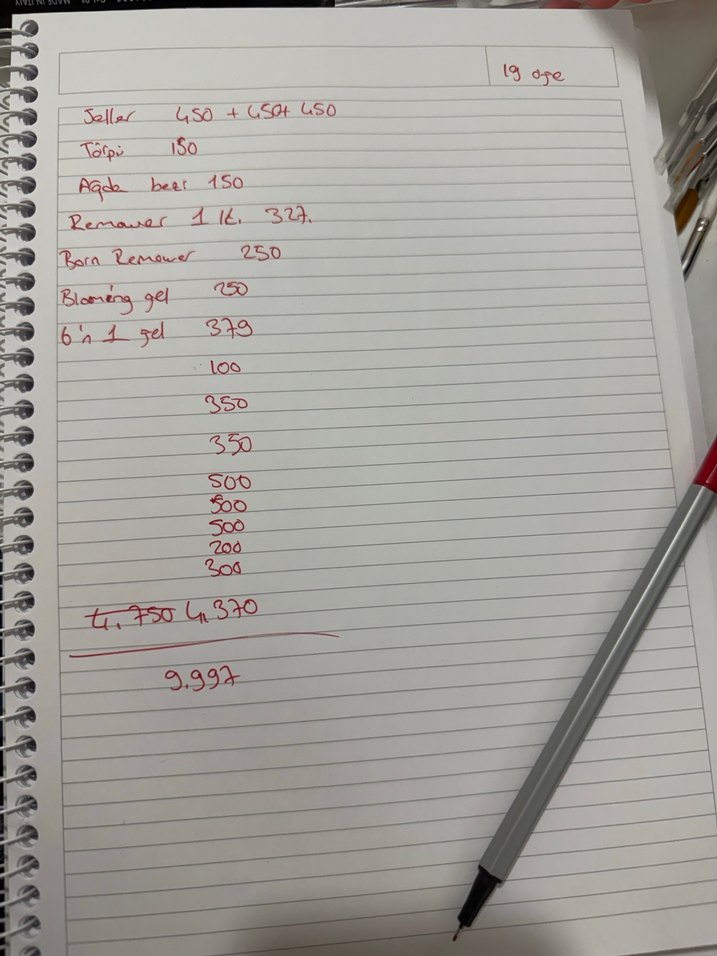 MADE IN ITALY
19 oge
Jeller 450 + 450+ 450
Törpü 150
Ağda bezi 150
Remower 1 lt. 327.
Born Remower 250
Blooming gel 250
6'n 1 gel 379
100
350
350
500
500
500
200
300
4.750 4.370
9.997